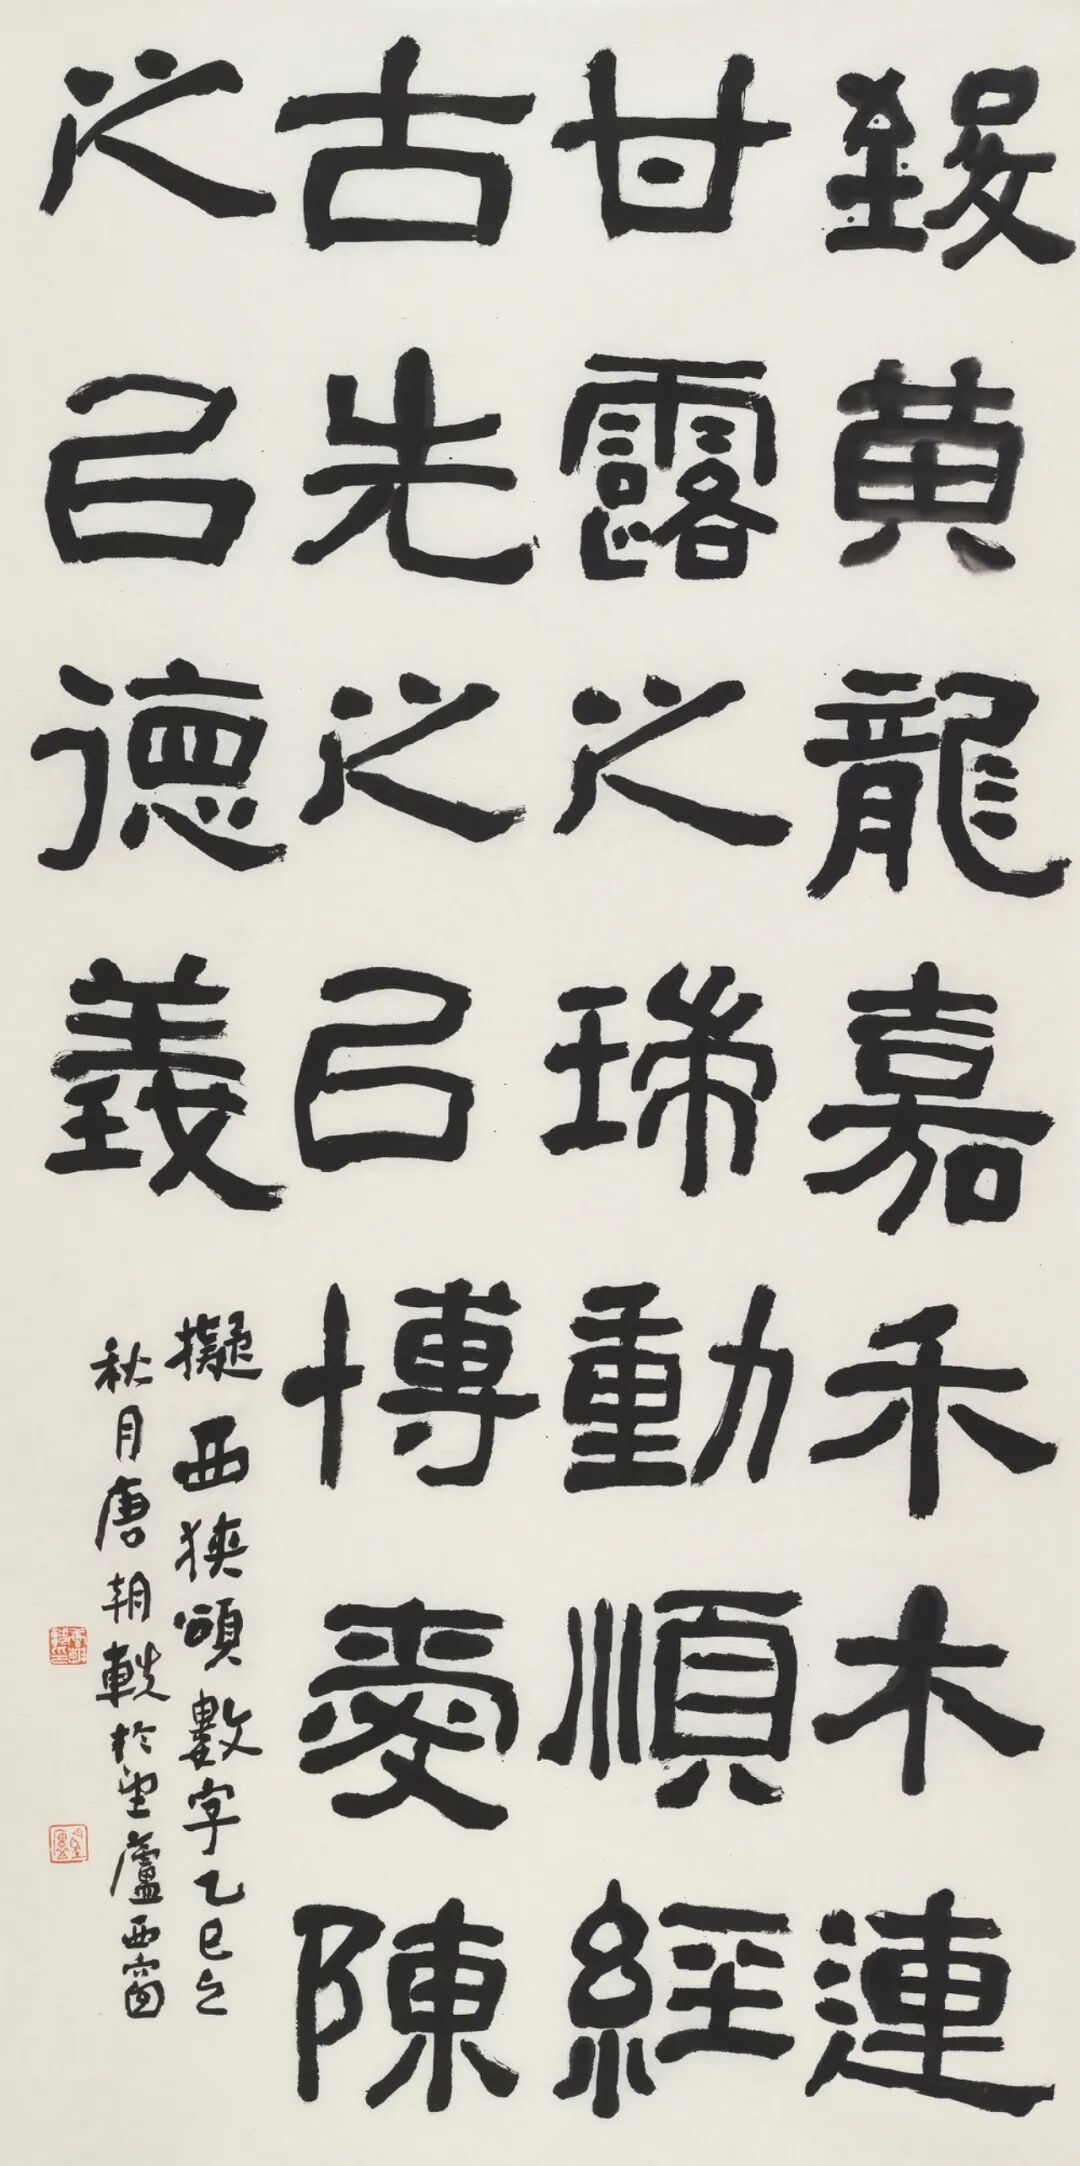 致黄龍嘉禾木連
甘露之瑞動順經
古先之㠯博愛陳
之㠯德義
擬西狹頌數字乙巳之
秋月唐朝軼於望蘆西窗